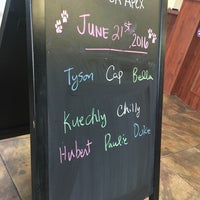 APEX
JUNE 21ST, 2016
Tyson Cap Bella
Kuechly Chilly
Hubert Paulie Duke